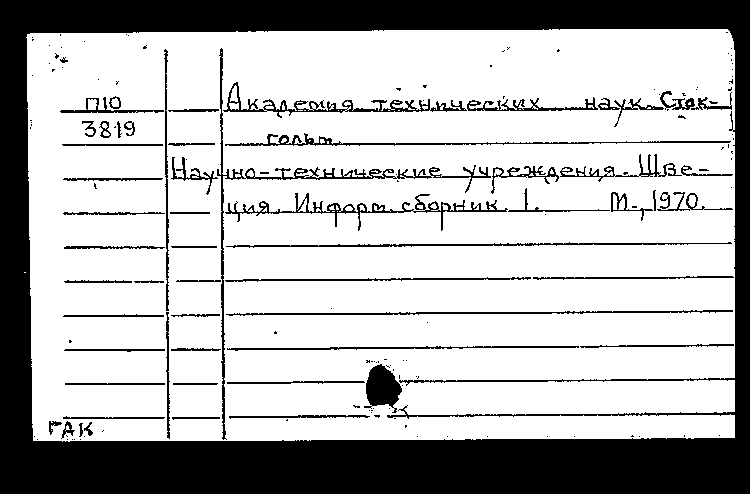 П10
3819
Академия технических наук. Сток-
гольм.
Научно-технические учреждения. Шве-
ция. Информ. сборник. 1. М., 1970.
ГАК